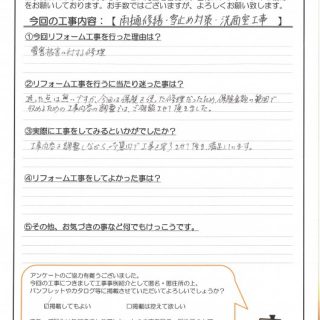 をお願いしております。お手数ではございますが、よろしくお願い致します。
今回の工事内容:【 雨樋修繕・雪止め対策・洗面室工事 】
①今回リフォーム工事を行った理由は?
雪害被害に対する修理
②リフォーム工事を行うに当たり迷った事は?
迷った点は無いですが、今回は保険を使った修理だったため、保険金額の範囲で
収めるための工事内容の調整は、ご相談させて頂きました。
③実際に工事をしてみるといかがでしたか?
工事内容を調整しながら、予算内で工事を完了させて頂き、満足しています。
④リフォーム工事をしてよかった事は?
⑤その他、お気づきの事など何でもけっこうです。
アンケートのご協力有難うございました。
今回の工事につきまして工事事例紹介として匿名・居住所の上、
パンフレットやカタログ等に掲載させていただいてよろしいでしょうか?
☑掲載してもよい □掲載は控えて欲しい